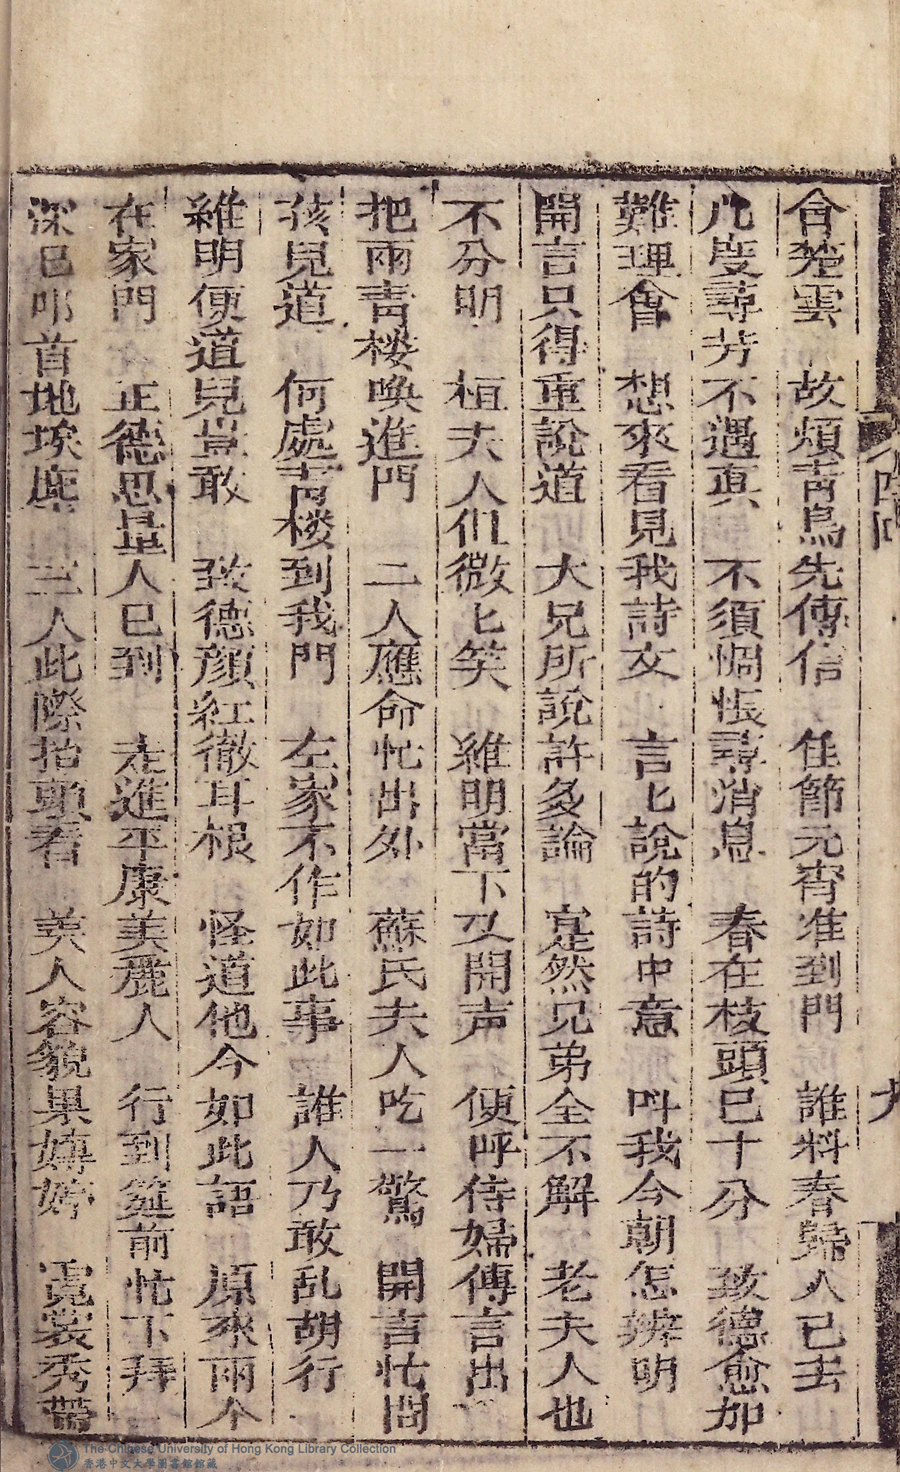 四回
九
會楚雲 故煩青鳥先傳信 佳節元宵准到門 誰料春歸人已去
凡度尋芳不遇真 不須惆悵尋消息 春在枝頭已十分 致德愈加
難理會 想來看見我詩文 言匕說的詩中意 呌我今朝怎辨明
開言只得重說道 大兄所說許多論 寔然兄弟全不解 老夫人也
不分明 桓夫人们微匕笑 維明當下又開声 便呼侍婦傳言出
把兩青楼喚進門 二人應命忙出外 蘇氏夫人吃一驚 開言忙問
孩兒道 何處青楼到我門 左家不作如此事 誰人乃敢乱胡行
維明便道兒豈敢 致德顏紅徹耳根 怪道他今如此語 原來兩个
在家門 正德思量人已到 走進平康美麗人 行到筵前忙下拜
深已叩首地埃塵 三人此際抬頭看 美人容貌果娉婷 霓裳秀帶
The Chinese University of Hong Kong Library Collection
香港中文大學圖書館館藏